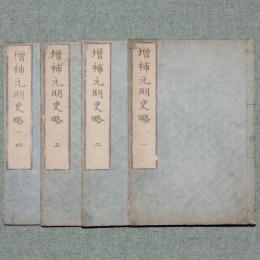 增補元明史略 一
增補元明史略 二
增補元明史略 三
增補元明史略 四